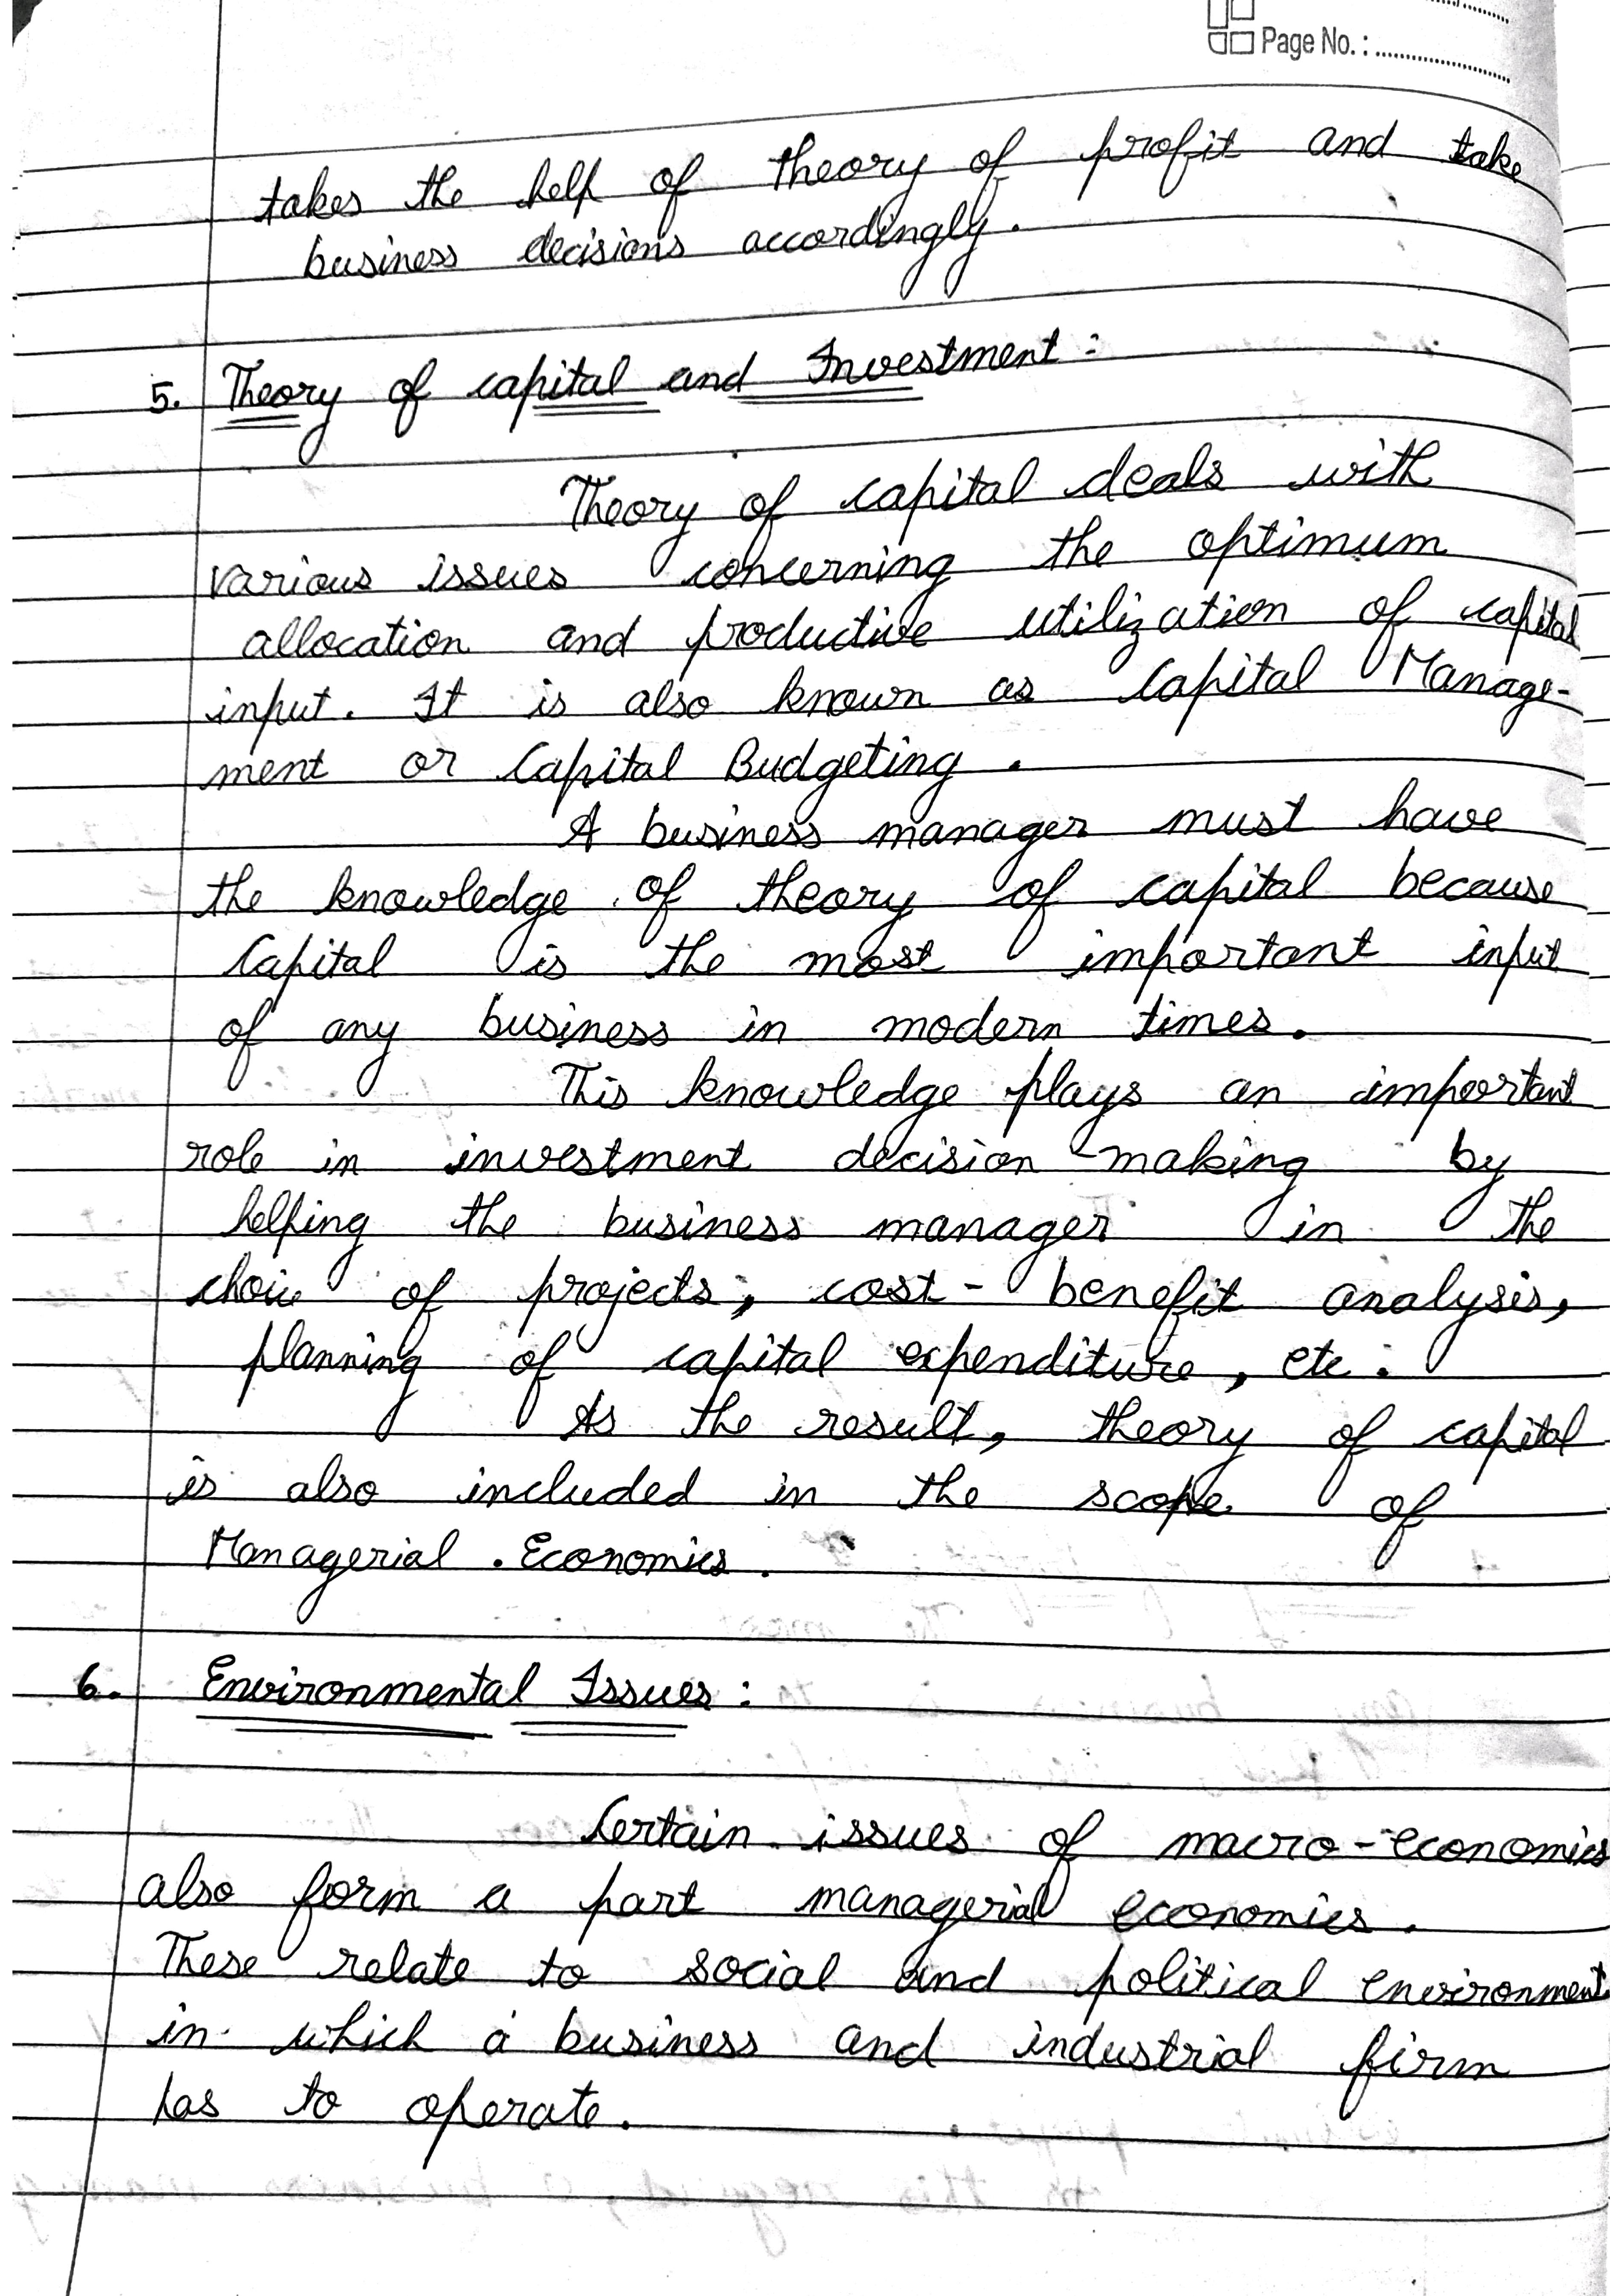 Page No. :
takes the help of theory of profit and take
business decisions accordingly.
5. Theory of capital and Investment :
Theory of capital deals with
various issues concerning the optimum
allocation and productive utilization of capital
input. It is also known as Capital Manage-
ment or Capital Budgeting.
A business manager must have
the knowledge of theory of capital because
Capital is the most important input
of any business in modern times.
This knowledge plays an important
role in investment decision-making by
helping the business manager in the
choice of projects, cost-benefit analysis,
planning of capital expenditure, etc.
As the result, theory of capital
is also included in the scope of
Managerial Economics.
6. Environmental Issues :
Certain issues of macro-economics
also form a part managerial economics.
These relate to social and political environment
in which a business and industrial firm
has to operate.